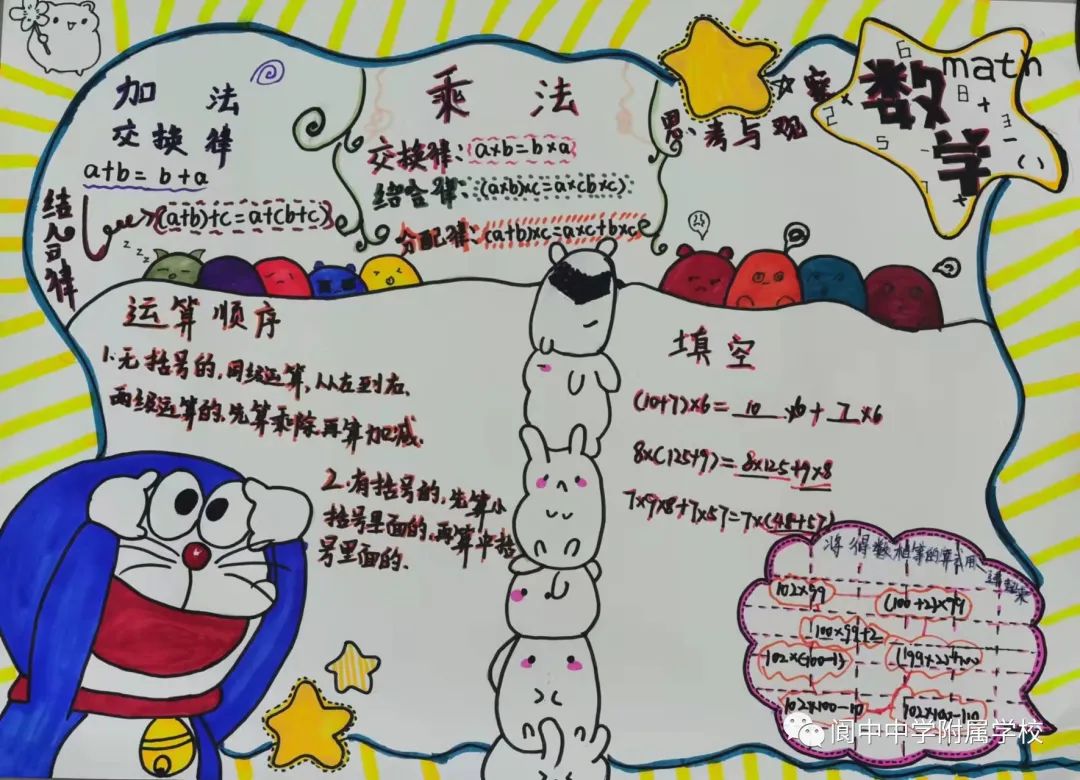 数学
math
加法
交换律
a+b=b+a
结合律
(a+b)+c=a+(b+c)
乘法
交换律:a×b=b×a
结合律:(a×b)×c=a×(b×c)
分配律:(a+b)×c=a×c+b×c
思考与观察
运算顺序
1.无括号的,同级运算,从左到右.
两级运算的,先算乘除,再算加减.
2.有括号的,先算小
括号里面的,再算中括
号里面的.
填空
(10+7)×6=10×6+7×6
8×(125+9)=8×125+9×8
7×9×8+7×57=7×(48+57)
将得数相等的算式用线连起来
102×99
(100+2)×99
100×99+2
102×(100-1)
102×100-10
102×100-110
阆中中学附属学校